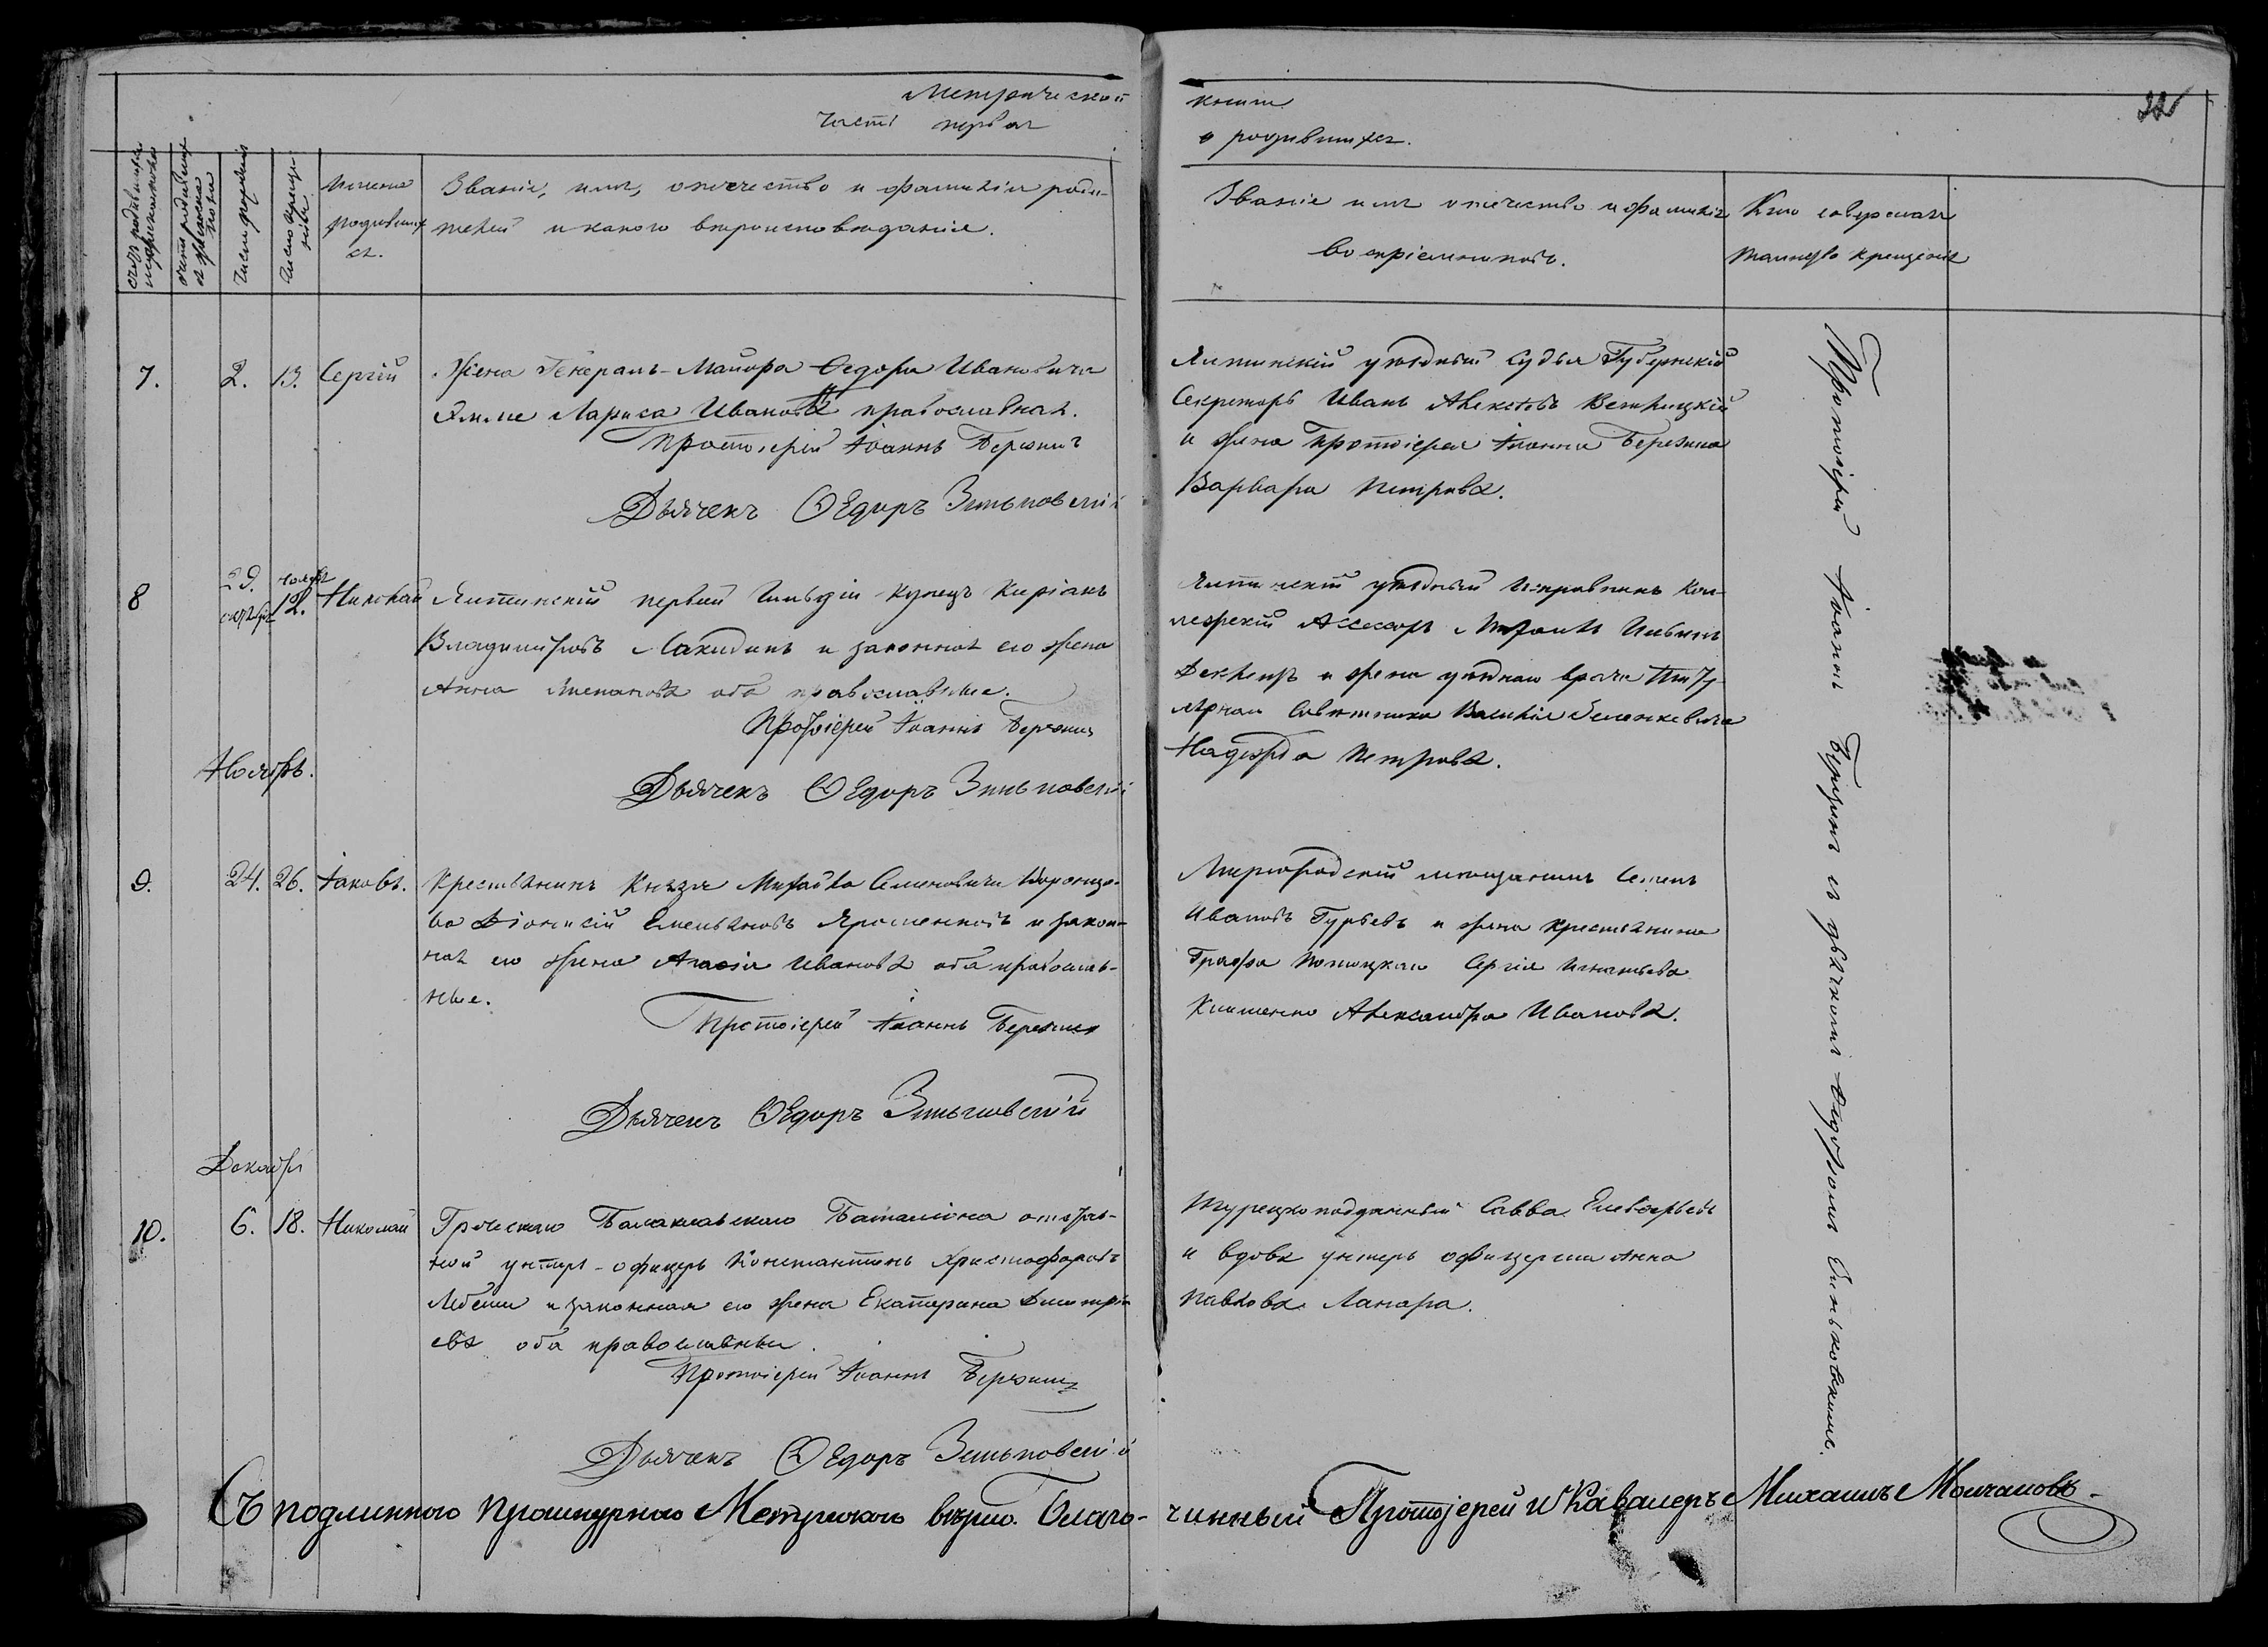 Метрической
части первая
книги
о родившихся.
22
счетъ родившихся мужеска пола
счетъ родившихся женска пола
Число рожденія
Число крещенія
Имена
родивших
ся.
Званіе, имя, отечество и фамилія роди-
телей и какого вѣроисповѣданія.
Званіе имя отечество и фамилія
воспріемниковъ.
Кто совершалъ
таинство крещенія
7. 2. 13. Сергій Жена Генералъ-Маіора Федора Ивановича
Лариса Иванова православная.
Протоіерей Іоаннъ Березинъ
Дьячекъ Ѳедоръ Зиньковскій
Ялтинскій уѣздный Судья Губернскій
Секретарь Иванъ
и жена Протоіерея Іоанна Березина
Варвара Петрова.
8 29. октября ноября 12. Николай Ялтинскій первой Гильдіи Купецъ Киріакъ
Владиміровъ и законная его жена
Анна Степанова оба православные.
Протоіерей Іоаннъ Березинъ
Дьячекъ Ѳедоръ Зиньковскій
Ялтинскій уѣздный Исправникъ Кол-
лежскій Ассесоръ
и жена уѣзднаго врача Титу-
лярнаго Совѣтника Василія
Надежда Петрова.
Ноябрь.
9. 24. 26. Іаковъ. Крестьянинъ Князя Михайла Семеновича Воронцо-
ва Діонисій Емельяновъ Ярошенковъ и закон-
ная его жена Агафія Иванова оба православ-
ные.
Протоіерей Іоаннъ Березинъ
Дьячекъ Ѳедоръ Зиньковскій
Миргородскій мѣщанинъ Семенъ
Ивановъ Гурьевъ и жена крестьянина
Графа Потоцкаго Сергія Игнатьева
Александра Иванова.
Декабрь
10. 6. 18. Николай Греческаго Балаклавскаго Баталіона отстав-
ной унтеръ-офицеръ Константинъ Христофоровъ
и законная его жена Екатерина Димитрі-
ева оба православные.
Протоіерей Іоаннъ Березинъ
Дьячекъ Ѳедоръ Зиньковскій
Турецкоподданный Савва Елевферьевъ
и вдова унтеръ офицерша Анна
Павлова Лапара.
Протоіерей Іоаннъ Березинъ съ дьячкомъ Ѳедоромъ Зиньковскимъ.
Съ подлинного прошнурного Метрическаго вѣрно. Благо-
чинный Протоіерей и Кавалеръ Михаилъ Молчановъ.